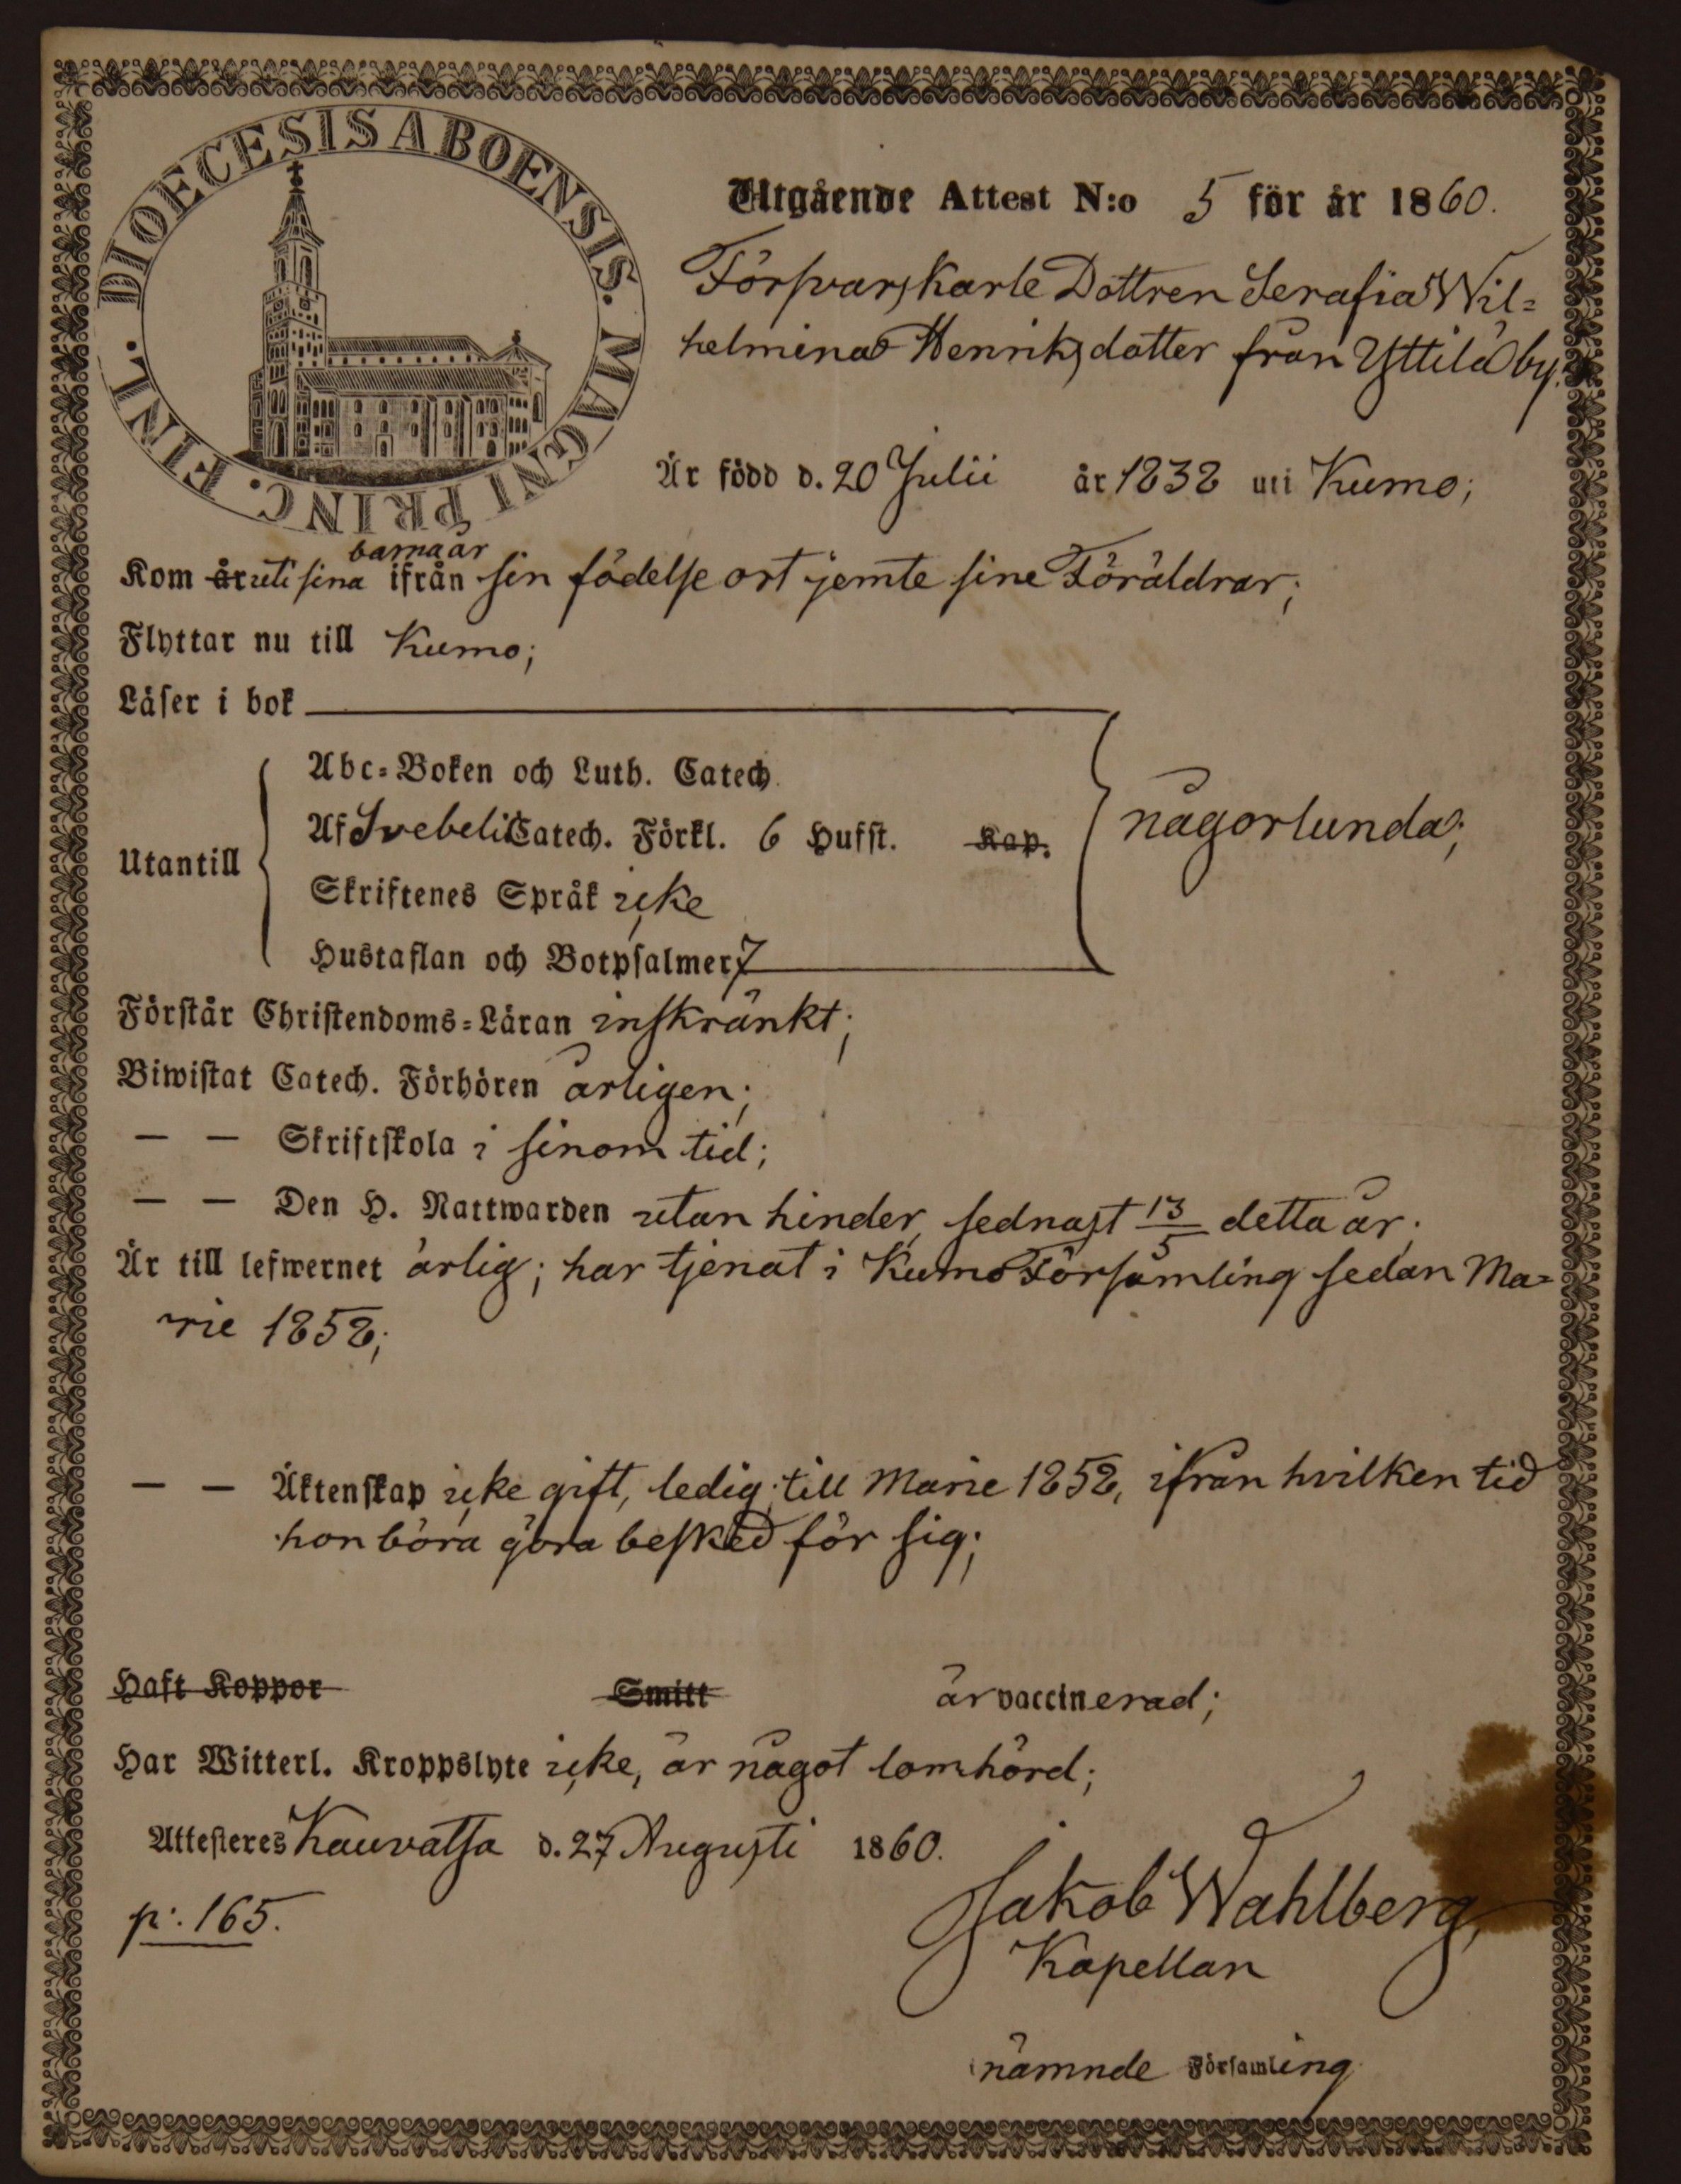 DIOECESIS ABOENSIS. MAGNI PRINC. FINL.
Utgående Attest N:o 5 för år 1860.
Försvarskarle Dottren Serafia Wil=
helmina Henriksdotter från Yttilä by.
Är född d. 20 Julii år 1838 uti Kumo;
barnaår
Kom år uti sina ifrån sin födelse ort jemte sine Föräldrar;
Flyttar nu till Kumo;
Läser i bok
Abc=Boken och Luth. Catech.
Utantill Af Svebelii Catech. Förkl. 6 Hufst. Kap. någorlunda;
Skriftenes Språk icke
Hustaflan och Botpsalmer 7
Förstår Christendoms=Läran inskränkt;
Biwistat Catech. Förhören årligen;
— — Skriftskola i sinom tid;
— — Den H. Nattwarden utan hinder, sednast 13/5 detta år;
Är till lefwernet ärlig; har tjenat i Kumo Församling sedan Ma=
rie 1858;
— — Äktenskap icke gift, ledig till Marie 1858, ifrån hvilken tid
hon böra göra besked för sig;
Haft Koppor Smitt är vaccinerad;
Har Witterl. Kroppslyte icke, är något lomhörd;
Attesteres Kauvatsa d. 27 Augusti 1860.
p: 165.
Jakob Wahlberg,
Kapellan
i nämnde Församling